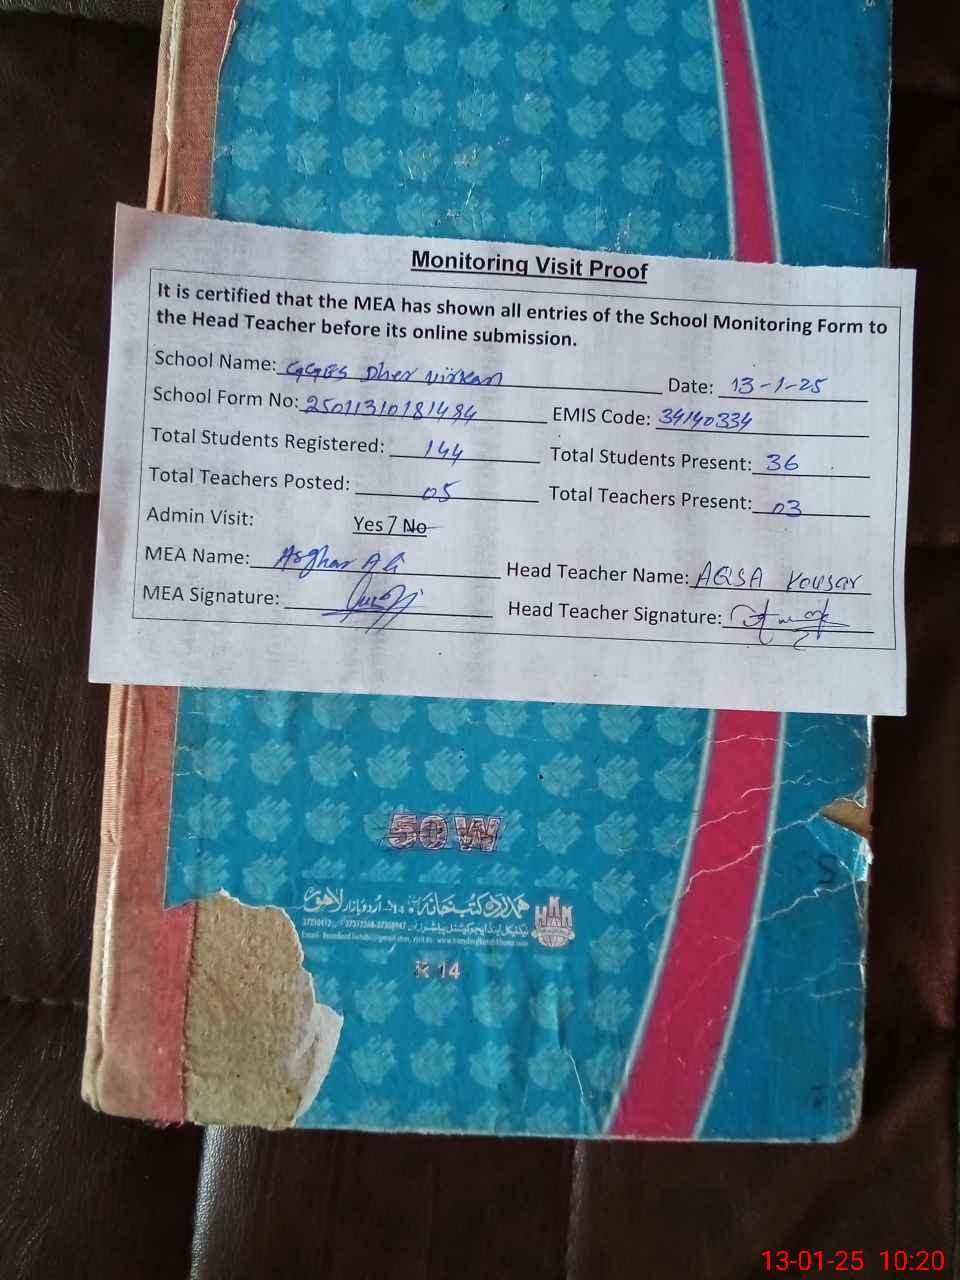 Monitoring Visit Proof
It is certified that the MEA has shown all entries of the School Monitoring Form to
the Head Teacher before its online submission.
School Name: GGES Dher virkan Date: 13-1-25
School Form No: 25011310181484 EMIS Code: 34140334
Total Students Registered: 144 Total Students Present: 36
Total Teachers Posted: 05 Total Teachers Present: 03
Admin Visit: Yes / No
MEA Name: Asghar Ali Head Teacher Name: AQSA Kousar
MEA Signature: Head Teacher Signature:
50 W
ہمدرد کتب خانہ اردو بازار لاہور
R 14
13-01-25 10:20